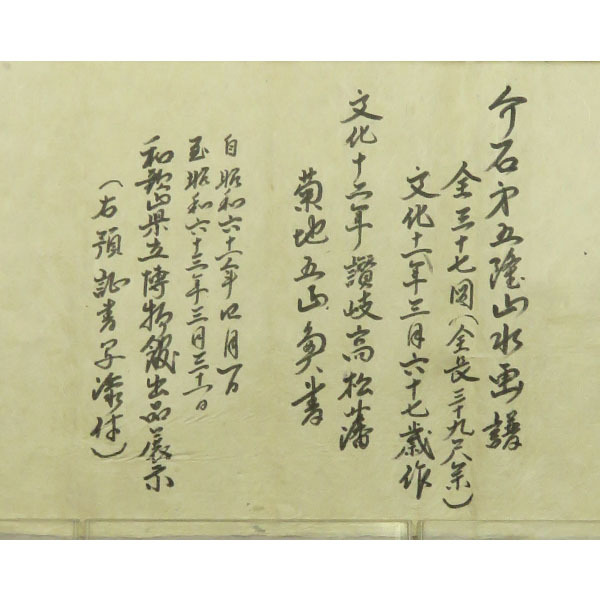 介石第五隆山水画譜
全三十七図(全長三十九尺余)
文化十一年三月六十七歳作
文化十二年讃岐高松藩
菊地五山奥書
自昭和六十一年四月一日
至昭和六十三年三月三十一日
和歌山県立博物館出品展示
(右預証書写添付)